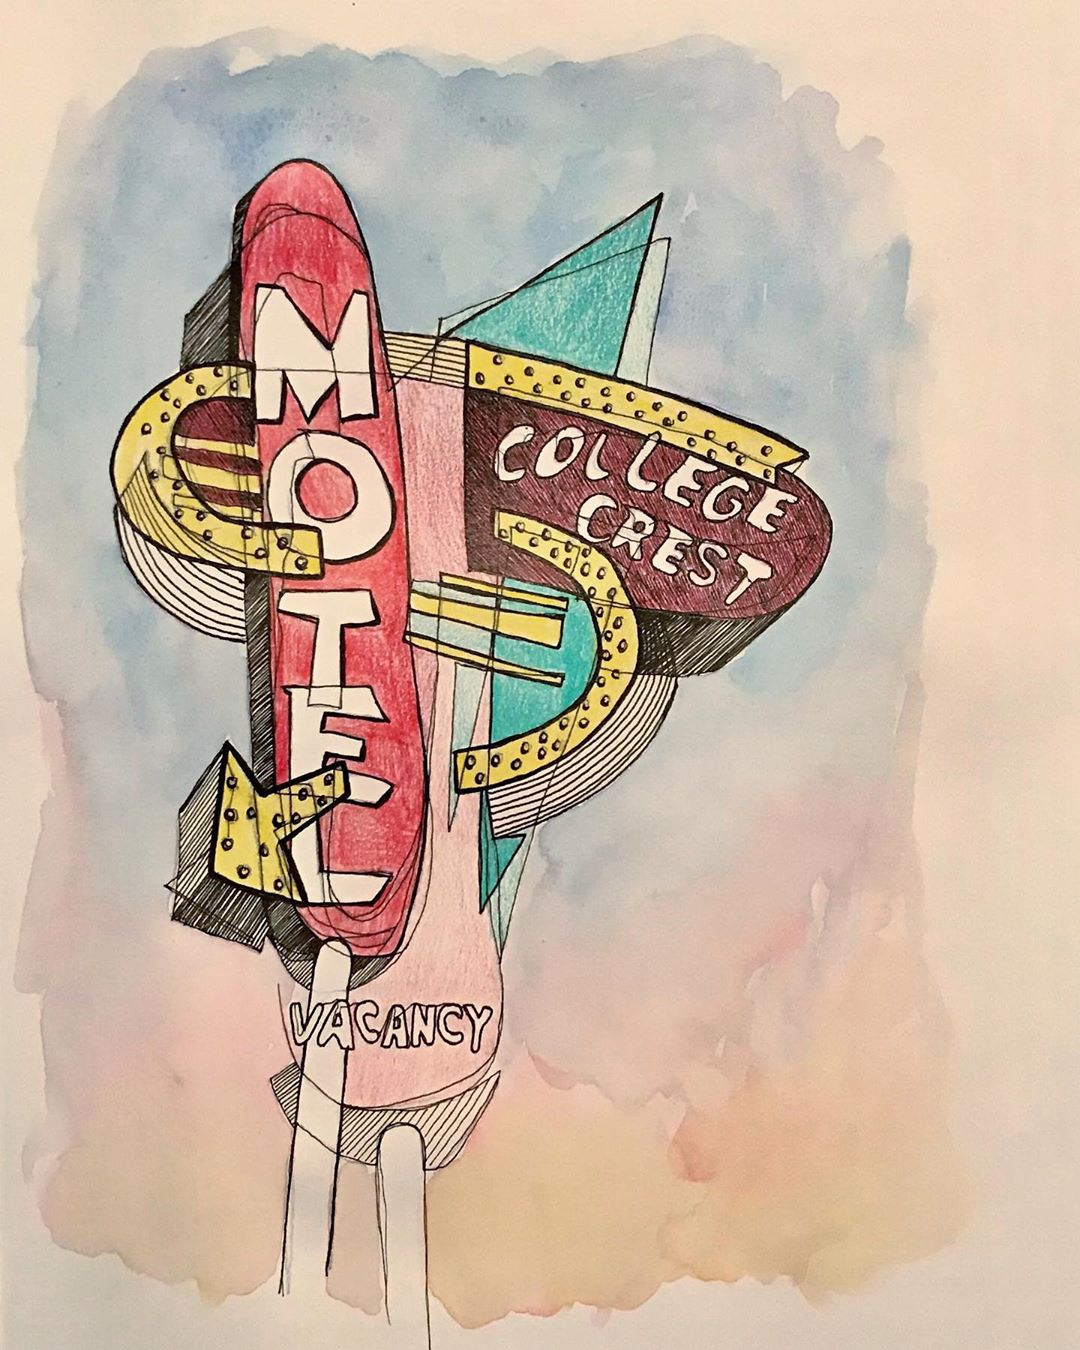 MOTEL
COLLEGE
CREST
VACANCY